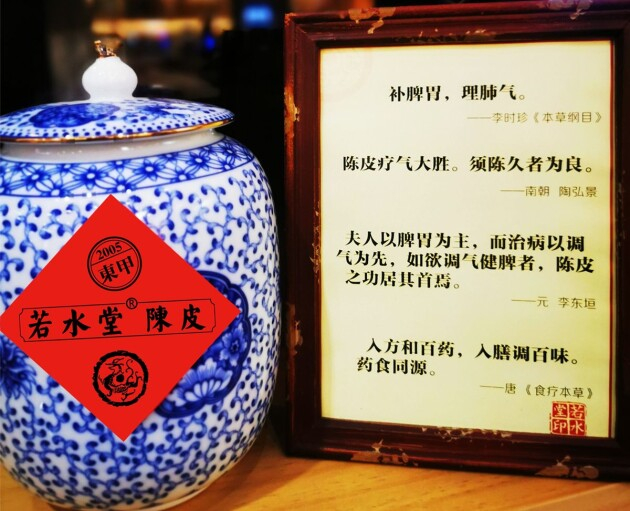 2005
東甲
若水堂® 陳皮
补脾胃，理肺气。
——李时珍《本草纲目》
陈皮疗气大胜。须陈久者为良。
——南朝 陶弘景
夫人以脾胃为主，而治病以调
气为先，如欲调气健脾者，陈皮
之功居其首焉。
——元 李东垣
入方和百药，入膳调百味。
药食同源。
——唐《食疗本草》
若水
堂印